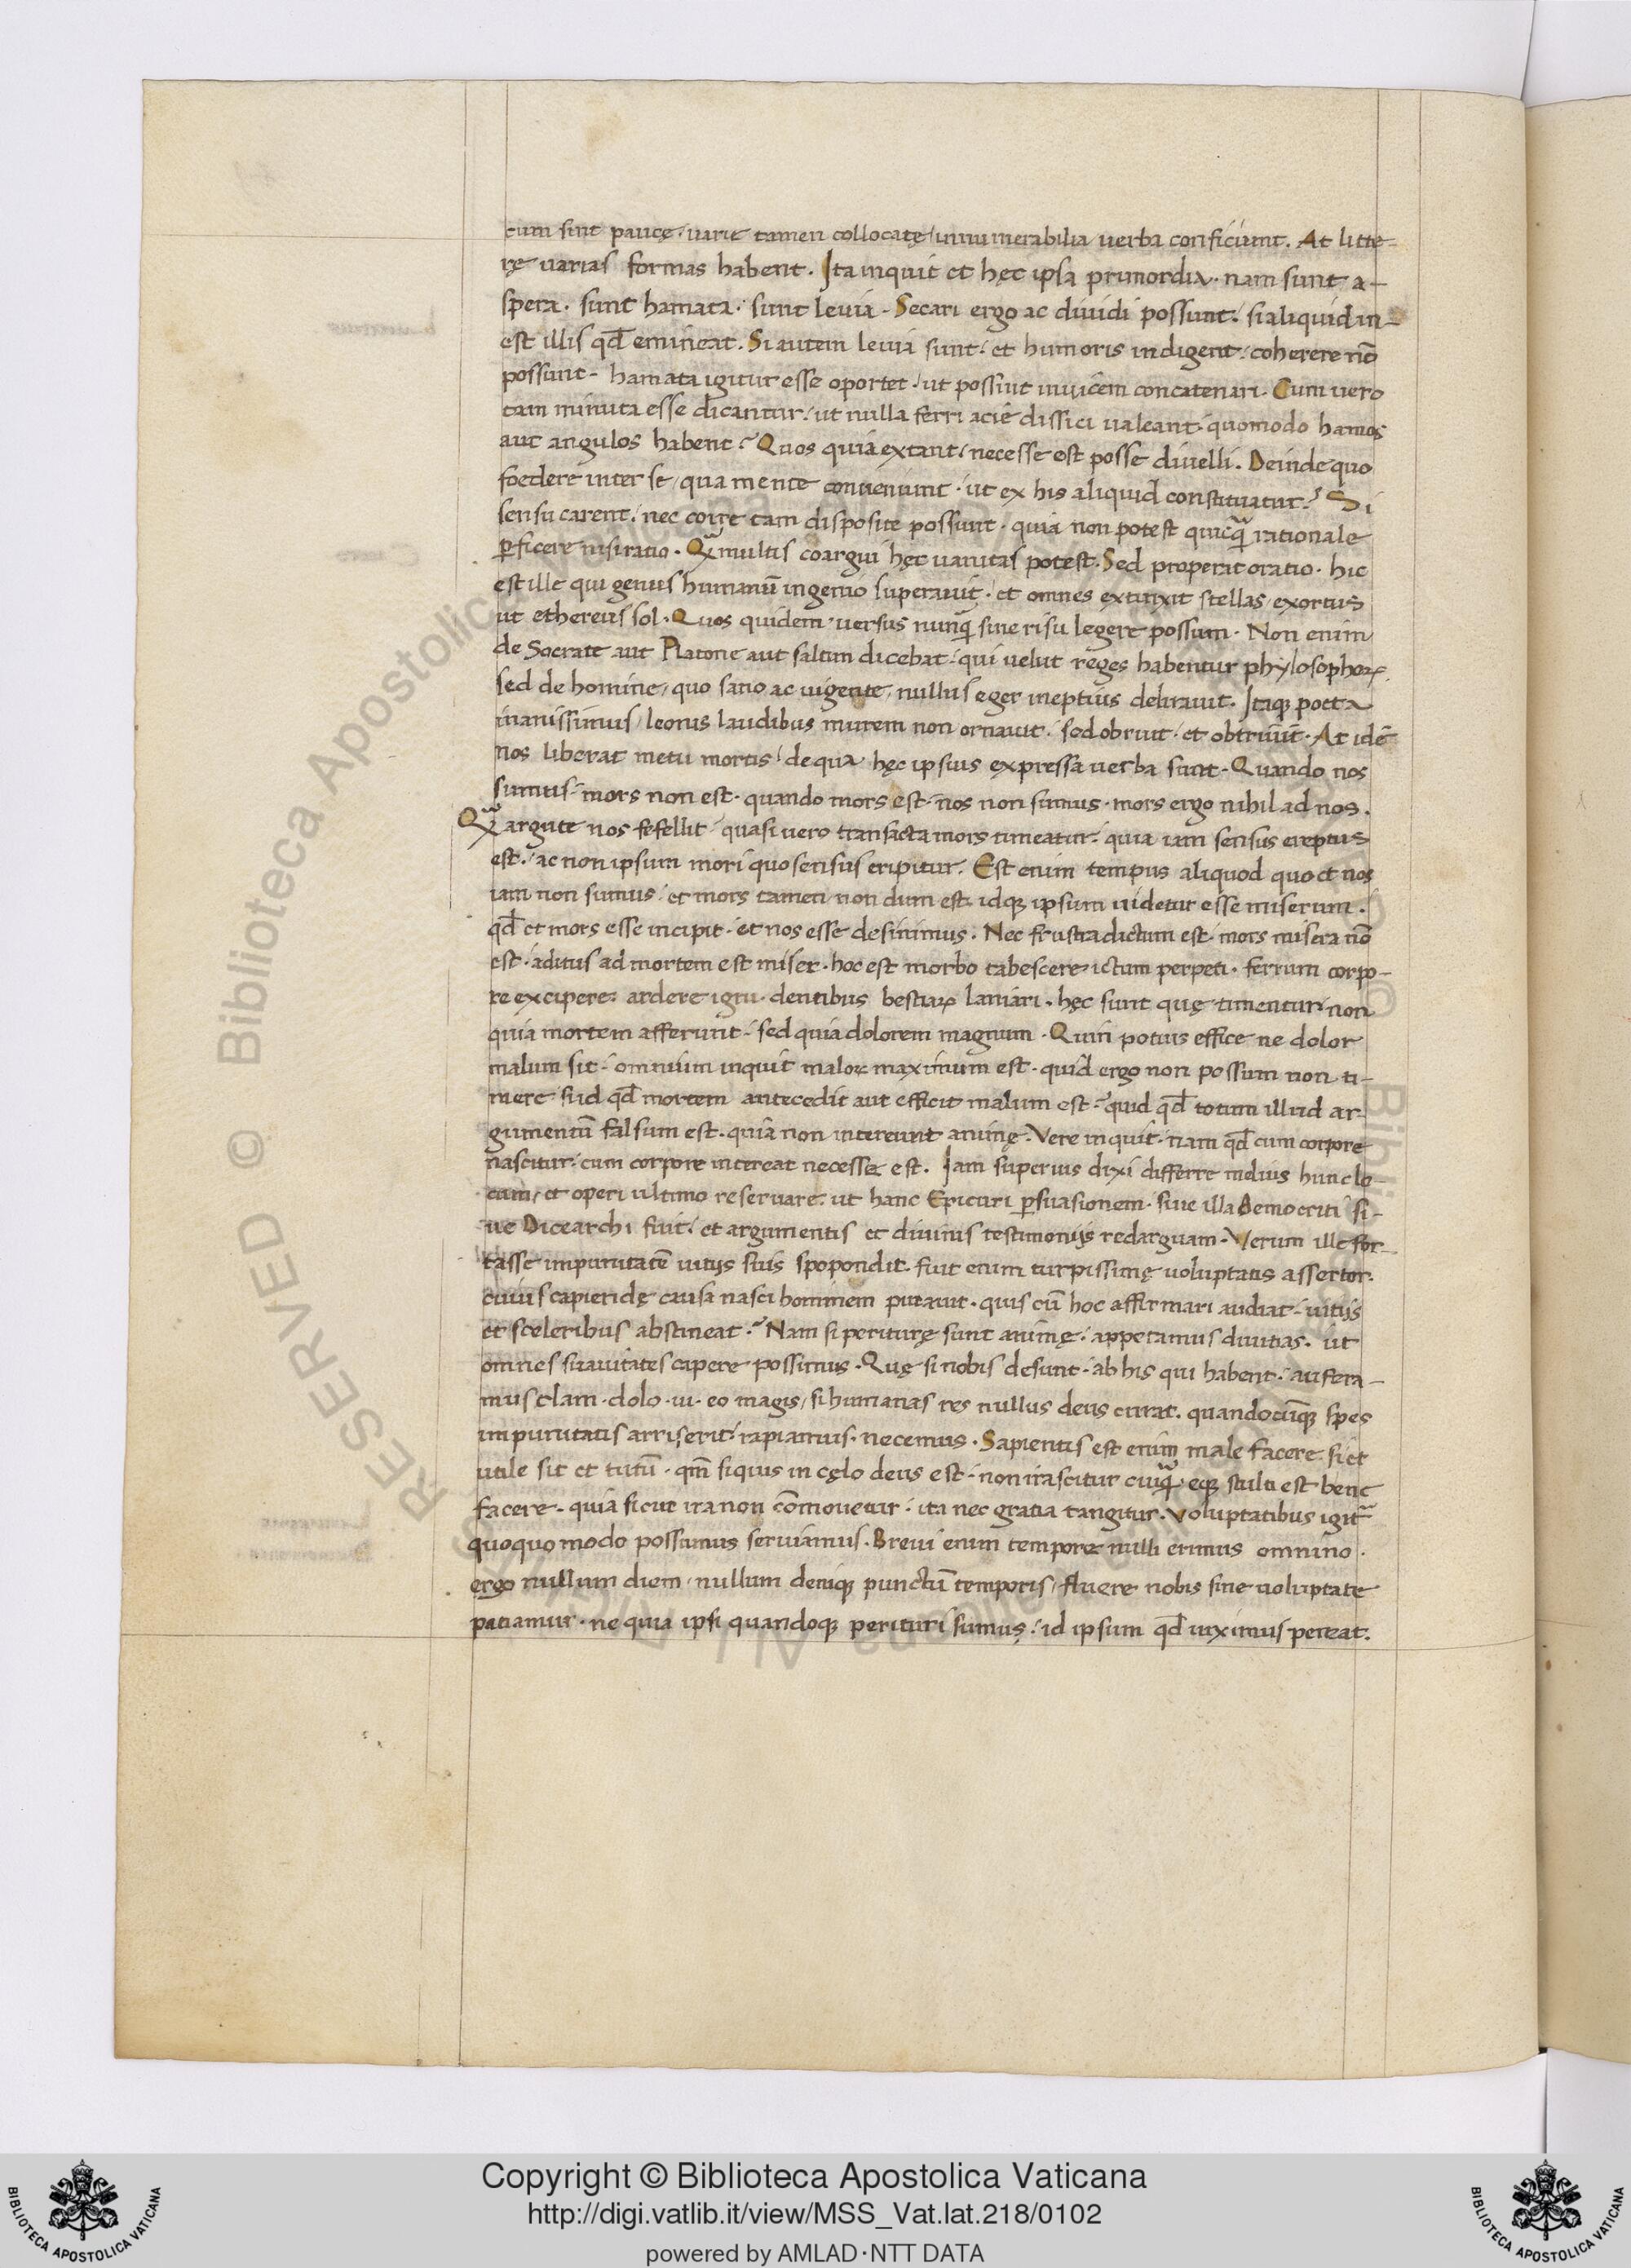 cum sint paucę, varie tamen collocatę innumerabilia verba conficiunt. At litte-
rę varias formas habent. Ita inquit et hęc ipsa primordia. nam sunt a-
spera. sunt hamata. sunt levia. Secari ergo ac dividi possunt. si aliquid in-
est illis qđ emineat. Si autem levia sunt: et humoris indigent: coherere nō
possunt. hamata igitur esse oportet. ut possint invicem concatenari. Cum vero
tam minuta esse dicantur: ut nulla ferri acie dissici valeant. quomodo hamos
aut angulos habent? Quos quia extant, necesse est posse divelli. Deinde quo
foedere inter se, qua mente conveniunt. ut ex his aliquid constituatur? Si
sensu carent. nec coire tam disposite possunt. quia non potest quicq̃ rationale
ꝑficere nisi ratio. Q̃ multis coargui hęc vanitas potest. Sed properat oratio. hic
est ille qui genus humanū ingenio superavit. et omnes extinxit stellas, exortus
ut ethereus sol. Quos quidem versus nunq̃ sine risu legere possum. Non enim
de Socrate aut Platone aut saltim dicebat: qui velut reges habentur phylosophoꝝ.
sed de homine, quo sano ac vigente, nullus eger ineptius deliravit. Itaqꝫ poeta
inanissimus, leonis laudibus murem non ornavit: sed obruit. et obtrivit. At idē
nos liberat metu mortis. de qua hęc ipsius expressa verba sunt. Quando nos
sumus. mors non est. quando mors est. nos non sumus. mors ergo nihil ad nos.
Q̃ argute nos fefellit. quasi vero transacta mors timeatur. quia iam sensus ereptus
est. ac non ipsum mori quo sensus eripitur. Est enim tempus aliquod quo et nos
iam non sumus. et mors tamen non dum est. idqꝫ ipsum videtur esse miserum.
qđ et mors esse incipit. et nos esse desinimus. Nec frustra dictum est. mors misera nō
est. aditus ad mortem est miser. hoc est morbo tabescere. ictum perpeti. ferrum corpo-
re excipere. ardere igni. dentibus bestiaꝝ laniari. hęc sunt quę timentur. non
quia mortem afferunt. sed quia dolorem magnum. Quin potius effice ne dolor
malum sit. omnium inquit maloꝝ maximum est. quid ergo non possum non ti-
mere, si id qđ mortem antecedit aut efficit malum est? quid qđ totum illud ar-
gumentū falsum est. quia non intereunt animę. Vere inquit. nam qđ cum corpore
nascitur. cum corpore intereat necesse est. Iam superius dixi differre melius hunc lo-
cum, et operi ultimo reservare. ut hanc Epicuri ꝑsuasionem. sive illa Democriti si-
ve Dicearchi fuit. et argumentis et divinis testimoniis redarguam. Verum ille for-
tasse impunitatē vitiis suis spopondit. fuit enim turpissimę voluptatis assertor.
cuius capiendę causa nasci hominem putavit. quis cū hoc affirmari audiat. vitiis
et sceleribus abstineat? Nam si periturę sunt animę. appetamus divitias. ut
omnes suavitates capere possimus. Quę si nobis desunt. ab his qui habent. aufera-
mus clam. dolo. vi. eo magis, si humanas res nullus deus curat. quandocūqꝫ spes
impunitatis arriserit. rapiamus. necemus. Sapientis est enim male facere si et
utile sit et tutū. qm̄ siquis in cęlo deus est. non irascitur cuiq̃. eqꝫ stulti est bene
facere. quia sicut ira non cōmovetur. ita nec gratia tangitur. Voluptatibus igit̃
quoquo modo possumus serviamus. Brevi enim tempore nulli erimus omnino.
ergo nullum diem, nullum deniqꝫ punctū temporis, fluere nobis sine voluptate
patiamur. ne quia ipsi quandoqꝫ perituri sumus. id ipsum qđ viximus pereat.
RESERVED © Biblioteca Apostolica
Copyright © Biblioteca Apostolica Vaticana
http://digi.vatlib.it/view/MSS_Vat.lat.218/0102
powered by AMLAD·NTT DATA
BIBLIOTECA APOSTOLICA VATICANA
BIBLIOTECA APOSTOLICA VATICANA